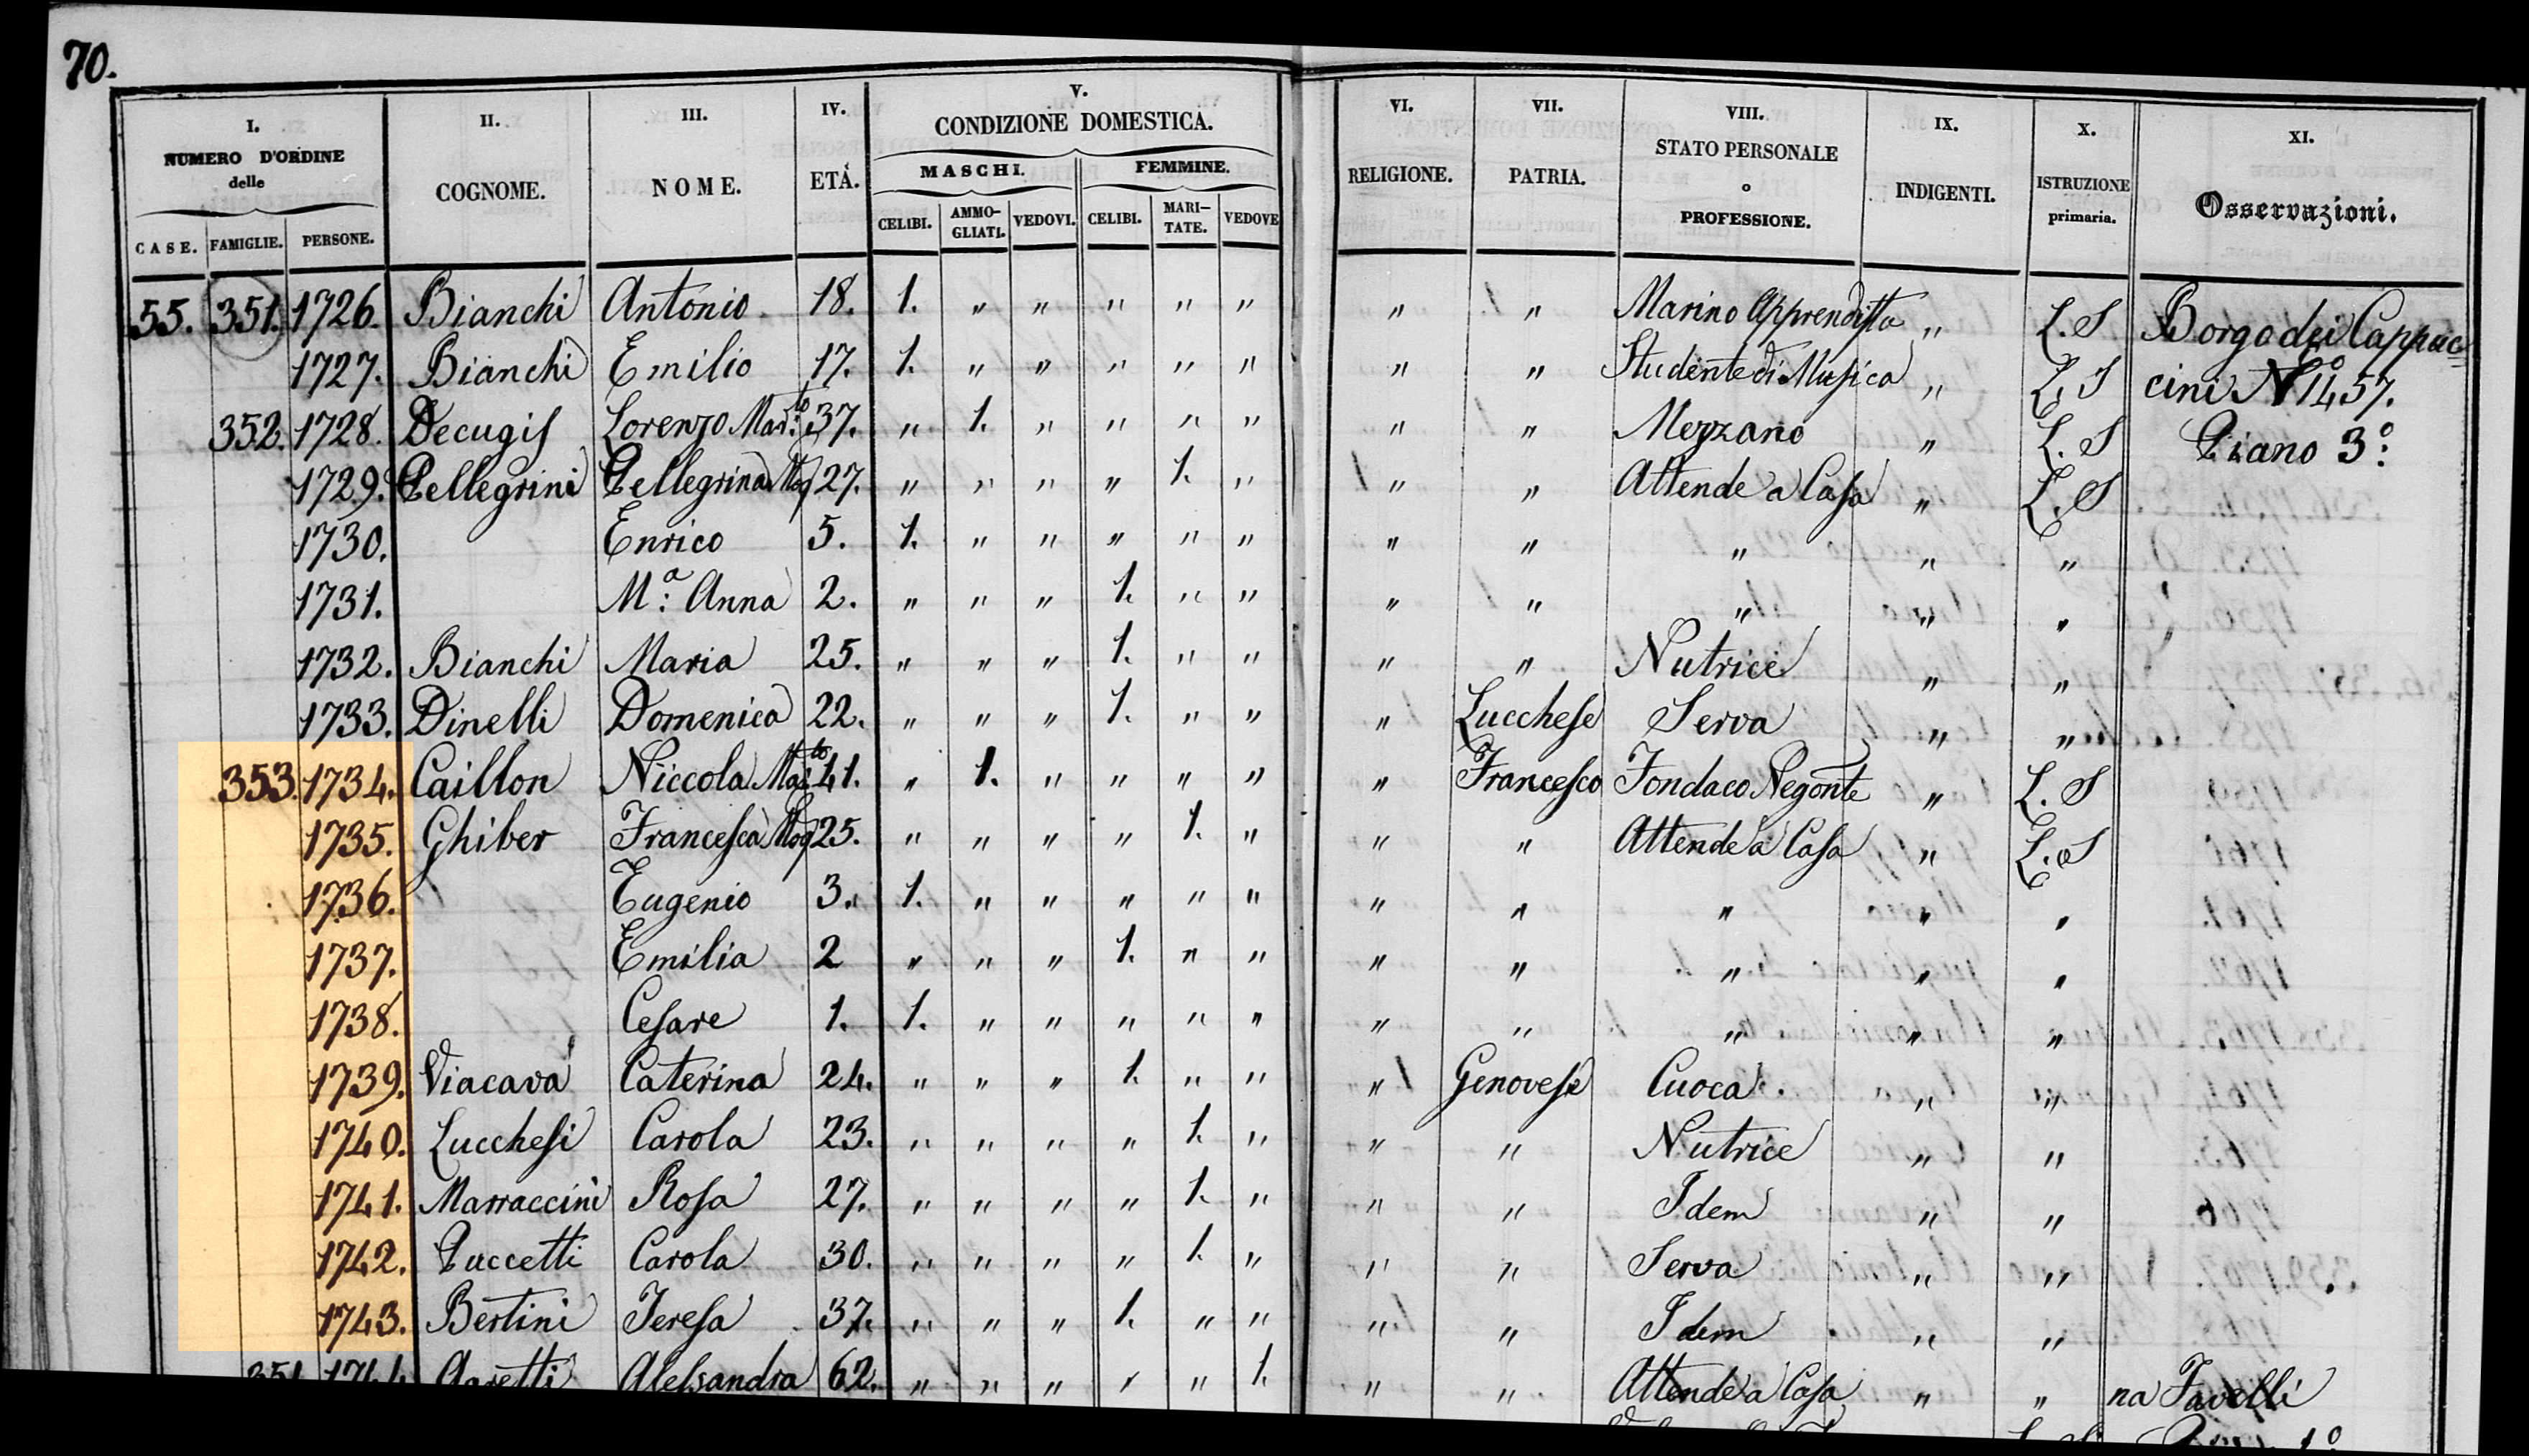 70.
I. II. III. IV. V. VI. VII. VIII. IX. X. XI.
NUMERO D'ORDINE delle COGNOME. NOME. ETÀ. CONDIZIONE DOMESTICA. RELIGIONE. PATRIA. STATO PERSONALE o PROFESSIONE. INDIGENTI. ISTRUZIONE primaria. Osservazioni.
MASCHI. FEMMINE.
CASE. FAMIGLIE. PERSONE. CELIBI. AMMO-GLIATI. VEDOVI. CELIBI. MARI-TATE. VEDOVE
55. 351. 1726. Bianchi Antonio 18. 1. " " " " " " " Marino Apprendista " L. S Borgo dei Cappuc
1727. Bianchi Emilio 17. 1. " " " " " " " Studente di Musica " L. S cini No 1457.
352. 1728. Decugis Lorenzo Mar:to 37. " 1. " " " " " " Mezzano " L. S Piano 3o:
1729. Pellegrini Pellegrina Mog 27. " " " " 1. " " " Attende a Casa " L. S
1730. Enrico 5. 1. " " " " " " " " " "
1731. Ma: Anna 2. " " " 1. " " " " " " "
1732. Bianchi Maria 25. " " " 1. " " " " Nutrice " "
1733. Dinelli Domenica 22. " " " 1. " " " Lucchese Serva " "
353. 1734. Caillon Niccola Mar:to 41. " 1. " " " " " Francesco Fondaco Negonte " L. S
1735. Ghiber Francesca Mog 25. " " " " 1. " " " Attende a Casa " L. S
1736. Eugenio 3. 1. " " " " " " " " " "
1737. Emilia 2 " " " 1. " " " " " " "
1738. Cesare 1. 1. " " " " " " " " " "
1739. Viacava Caterina 24. " " " 1. " " " Genovese Cuoca " "
1740. Lucchesi Carola 23. " " " " 1. " " " Nutrice " "
1741. Marraccini Rosa 27. " " " " 1. " " " Idem " "
1742. Puccetti Carola 30. " " " " 1. " " " Serva " "
1743. Bertini Teresa 37. " " " 1. " " " " Idem " "
Alessandra 62. " " " " " 1. " " Attende a Casa " " na Favelli